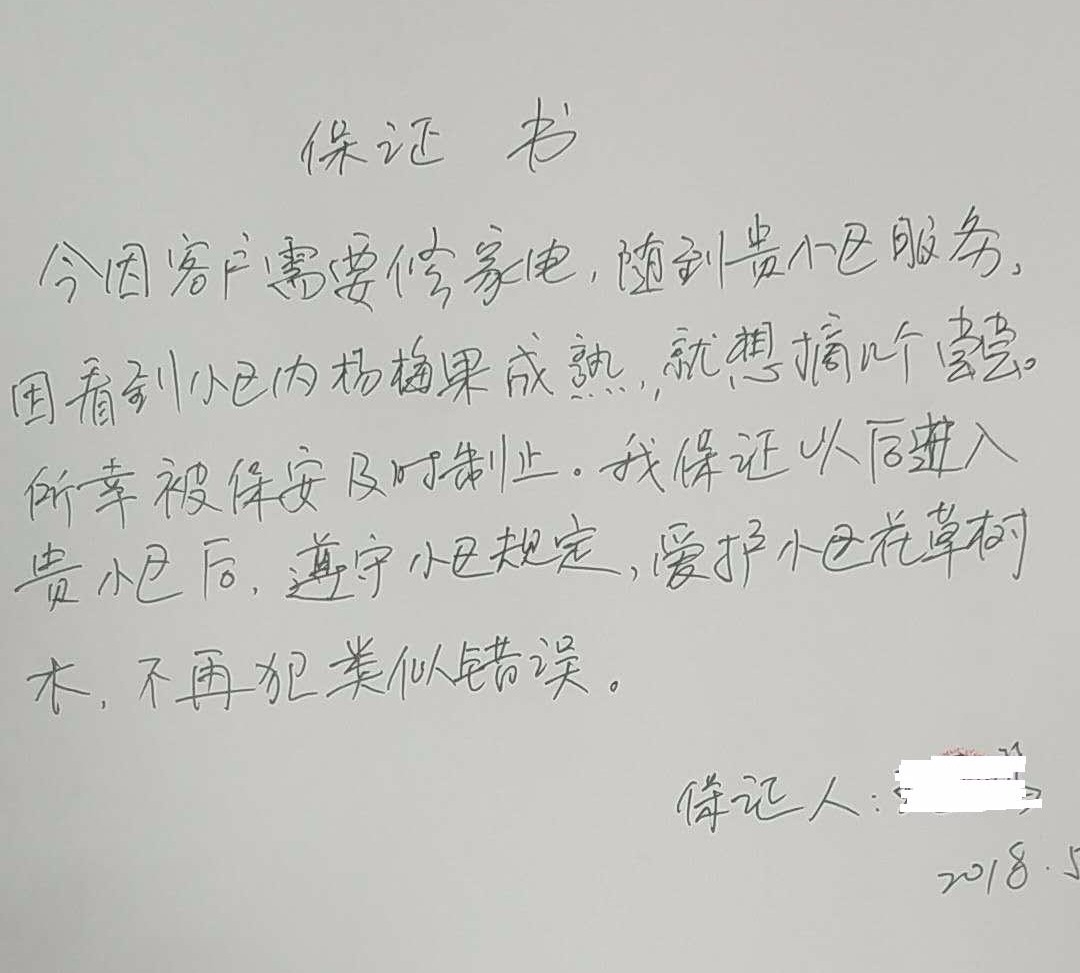 保证书
今因客户需要修家电，随到贵小区服务。
因看到小区内杨梅果成熟，就想摘几个尝尝。
所幸被保安及时制止。我保证以后进入
贵小区后，遵守小区规定，爱护小区花草树
木，不再犯类似错误。
保证人：
2018.5